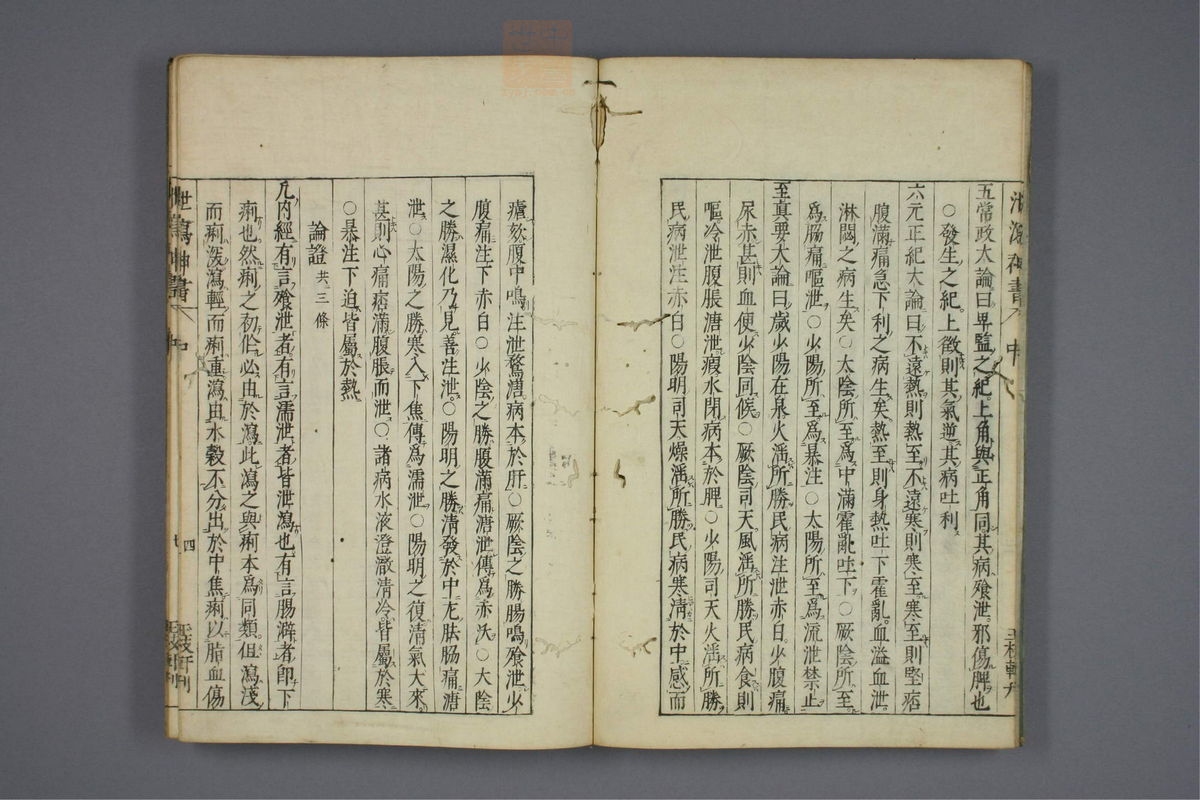 五常政大論曰卑監之紀上角與正角同其病飧泄邪傷脾也
○發生之紀上徵則其氣逆其病吐利
六元正紀大論曰不遠熱則熱至不遠寒則寒至寒至則堅痞
腹滿痛急下利之病生矣熱至則身熱吐下霍亂血溢血泄
淋閟之病生矣○太陰所至爲中滿霍亂吐下○厥陰所至
爲脇痛嘔泄○少陽所至爲暴注○太陽所至爲流泄禁止
至真要大論曰歲少陽在泉火淫所勝民病注泄赤白少腹痛
尿赤甚則血便少陰同候○厥陰司天風淫所勝民病食則
嘔冷泄腹脹溏泄瘕水閉病本於脾○少陽司天火淫所勝
民病泄注赤白○陽明司天燥淫所勝民病寒清於中感而
瘧欬腹中鳴注泄鶩溏病本於肝○厥陰之勝腸鳴飧泄少
腹痛注下赤白○少陰之勝腹滿痛溏泄傳爲赤沃○太陰
之勝濕化乃見善注泄○陽明之勝清發於中左胠脇痛溏
泄○太陽之勝寒入下焦傳爲濡泄○陽明之復清氣大來
甚則心痛痞滿腹脹而泄○諸病水液澄澈清冷皆屬於寒
○暴注下迫皆屬於熱
論證 共三條
凡內經有言飧泄者有言濡泄者皆泄瀉也有言腸澼者即下
痢也然痢之初作必由於瀉此瀉之與痢本爲同類但瀉淺
而痢深瀉輕而痢重瀉由水穀不分出於中焦痢以脂血傷
中
四